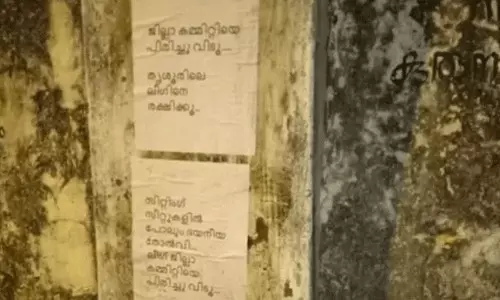 ജില്ലാ കമ്മിറ്റിയെ
പിരിച്ചു വിടൂ....
തൃശൂരിലെ
ലീഗിനെ
രക്ഷിക്കൂ...
സിറ്റിംഗ്
സീറ്റുകളിൽ
പോലും ദയനീയ
തോൽവി...
ലീഗ് ജില്ലാ
കമ്മിറ്റിയെ
പിരിച്ചു വിടൂ....